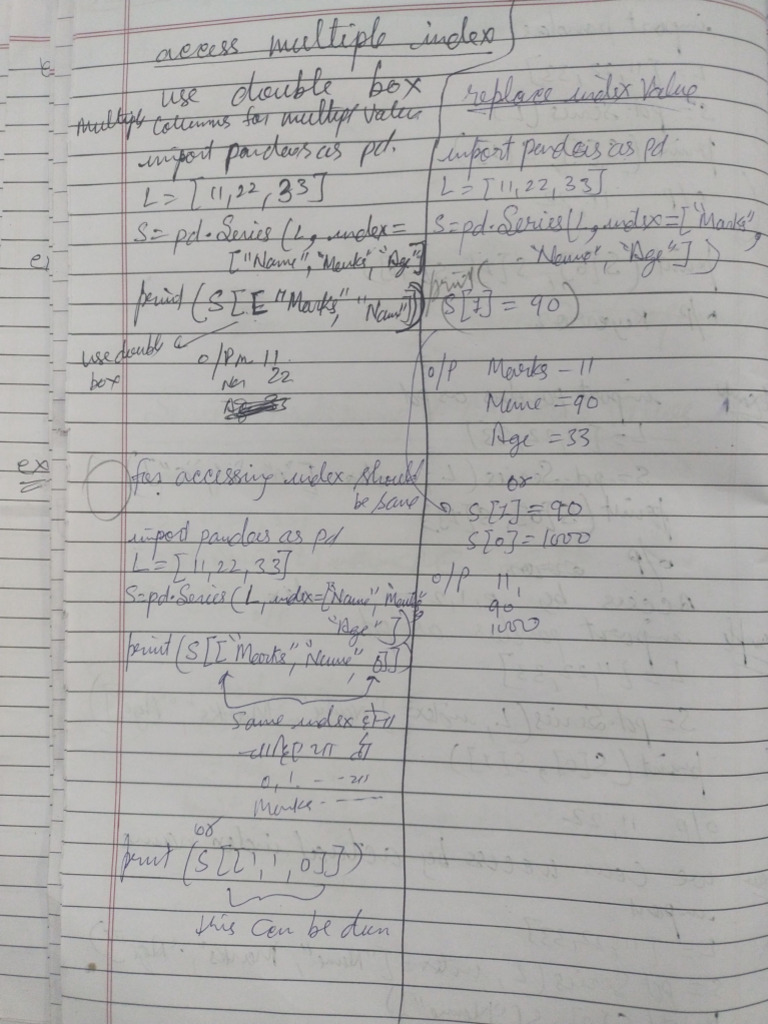 access multiple index
use double box
Multiple Columns for multipl Values
import pandas as pd.
L = [11,22,33]
S = pd.Series (L, index=
["Name", "Marks", "Age"]
print (S[["Marks", "Name"]])
use double box
O/P 11
22
ex
for accessing index should
be same
import pandas as pd
L = [11,22,33]
S=pd.Series (L, index=["Name", "Marks"
"Age"])
print (S[["Marks", "Name", 0]])
Same index
0, 1. - -
Marks - - -
or
print (S[[1, 1, 0]])
this Can be dun
replace index Value
import pandas as pd
L = [11,22,33]
S=pd.Series(L, index=["Marks",
"Name", "Age"])
print(
S[1] = 90)
O/P Marks - 11
Name = 90
Age = 33
or
S[1] = 90
S[0] = 1000
O/P 11,
90,
1000